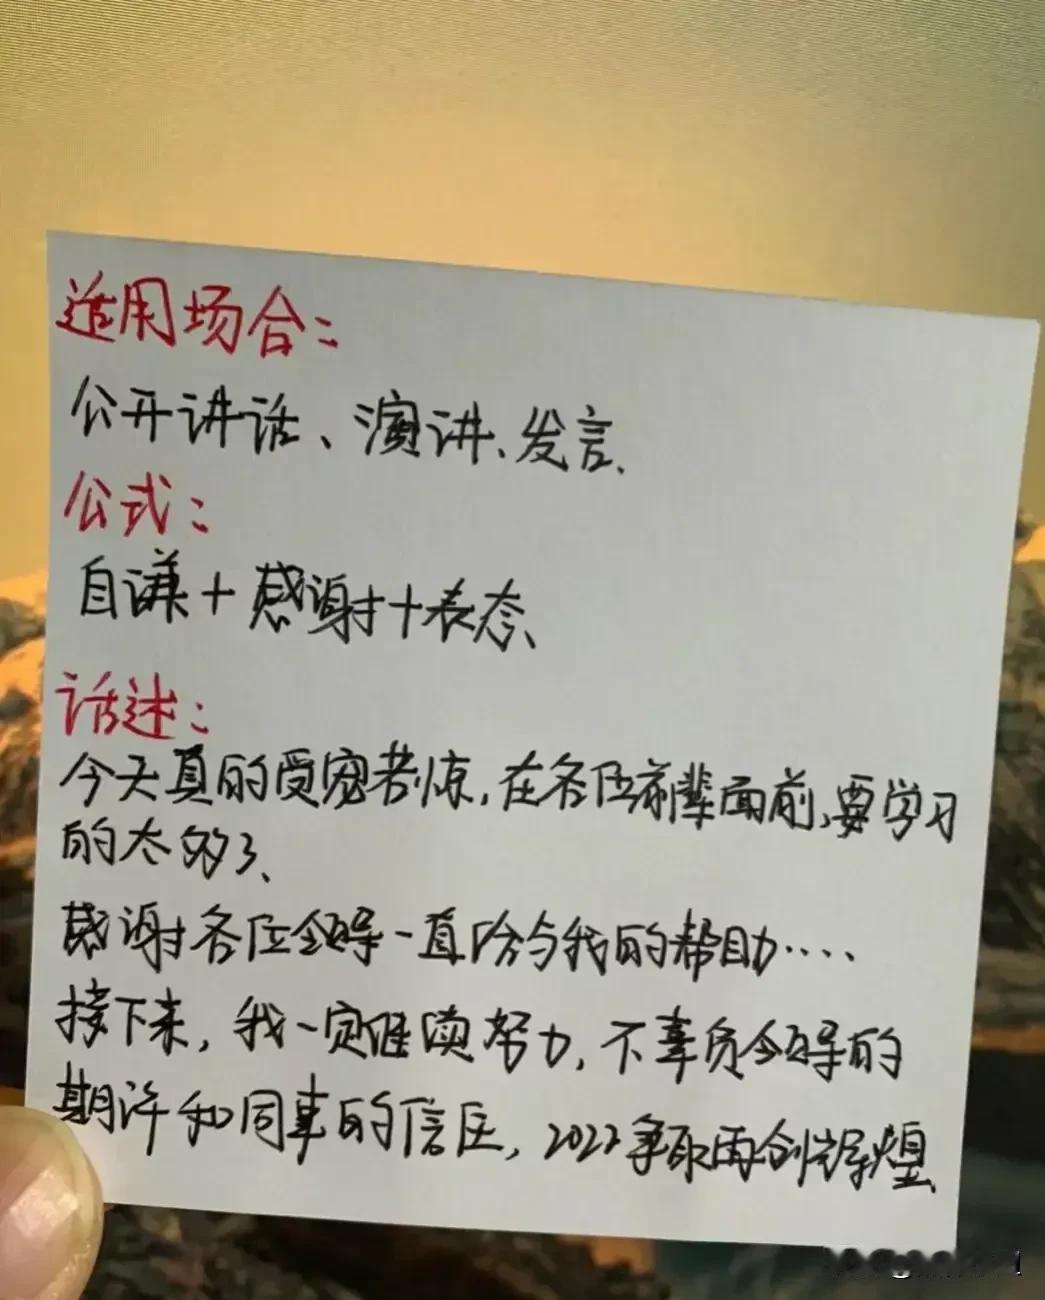 适用场合：
公开讲话、演讲、发言、
公式：
自谦+感谢+表态、
话述：
今天真的受宠若惊，在各位前辈面前，要学习
的太多了、
感谢各位领导一直给与我的帮助····
接下来，我一定继续努力，不辜负领导的
期许和同事的信任，2022争取再创辉煌、